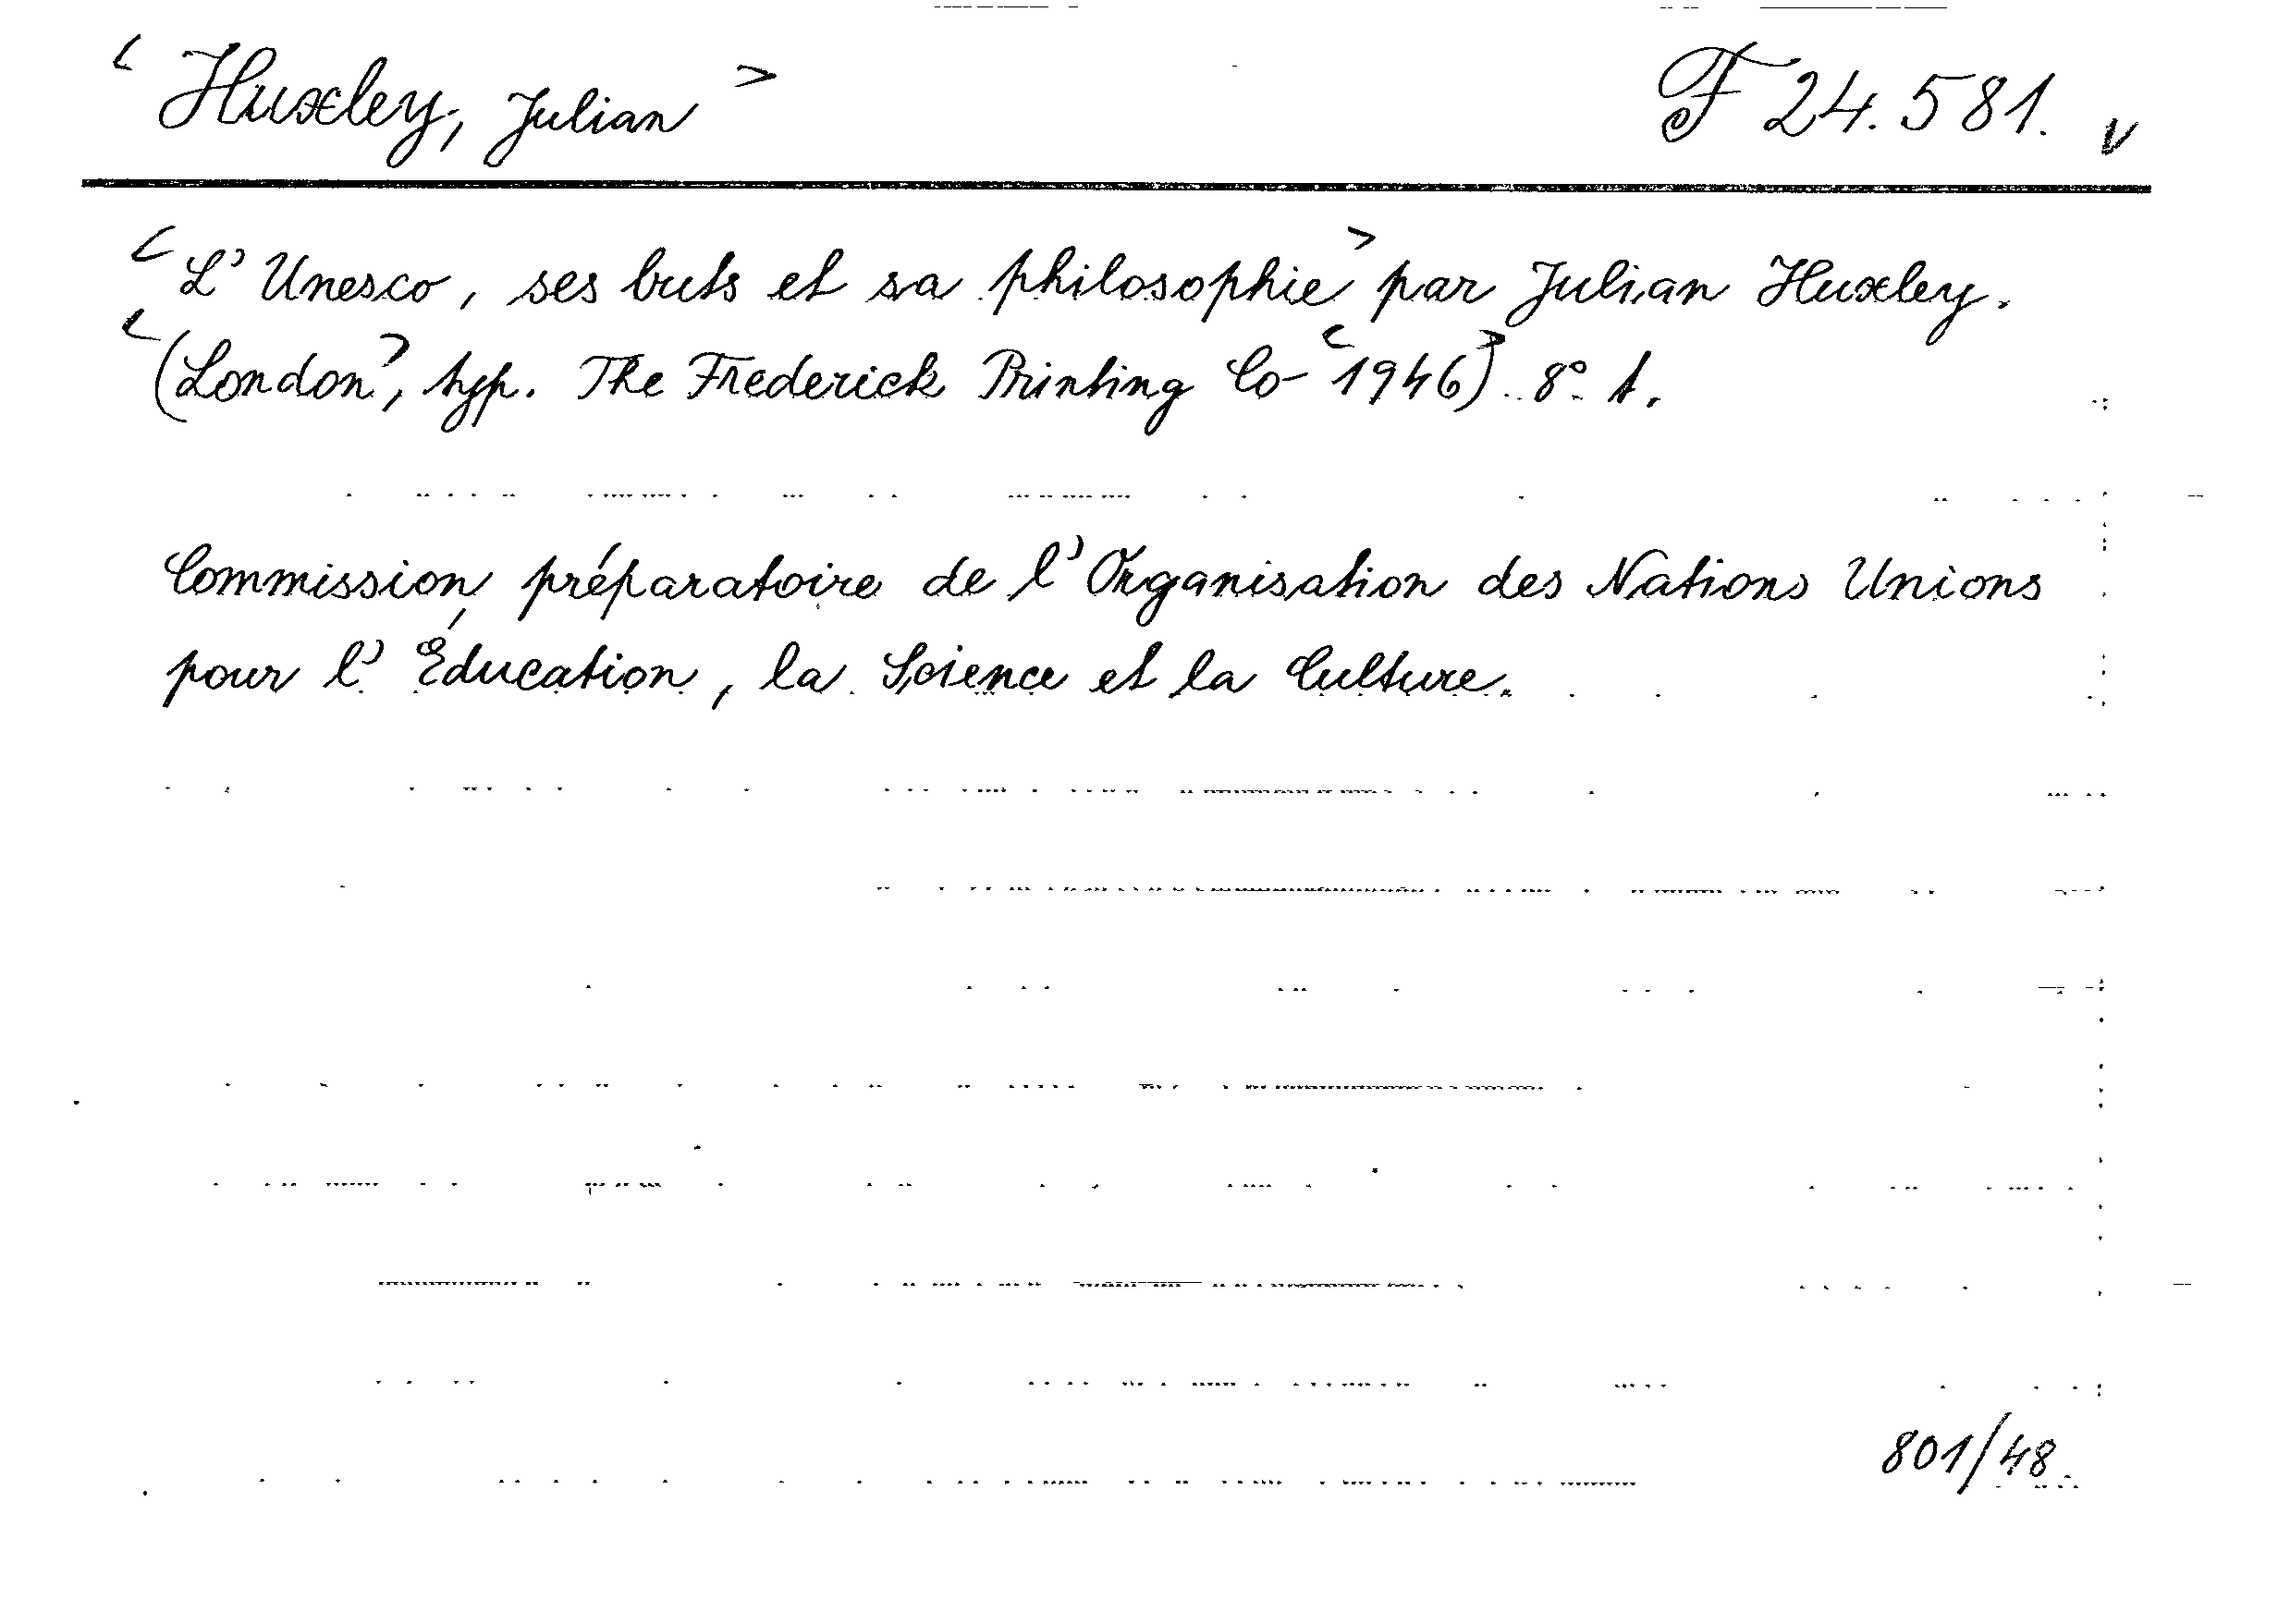 < Huxley, Julian > F 24.581. v
< L' Unesco, ses buts et sa philosophie > par Julian Huxley.
< (London >, typ. The Frederick Printing Co - < 1946) > 8° t.
Commission préparatoire de l' Organisation des Nations Unions
pour l' Éducation, la Science et la Culture.
801/48.